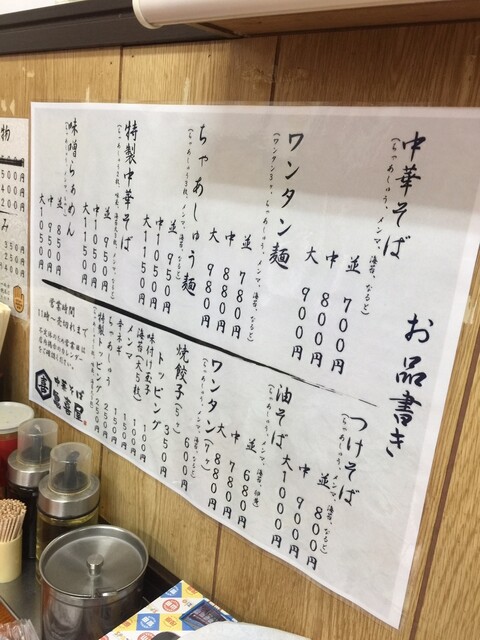 お品書き
中華そば
(ちゃあしゅう、メンマ、海苔、なると)
並 700円
中 800円
大 900円
ワンタン麺
(ワンタン3ヶ、ちゃあしゅう、メンマ、海苔、なると)
並 780円
中 880円
大 980円
ちゃあしゅう麺
並 950円
中 1050円
大 1150円
特製中華そば
並 950円
中 1050円
大 1150円
味噌らぁめん
並 850円
中 950円
大 1050円
つけそば
(ちゃあしゅう、メンマ、海苔、なると)
並 800円
中 900円
大 1000円
油そば
並 680円
中 780円
大 880円
ワンタン(7ヶ)
(ちゃあしゅう、メンマ、海苔、なると)
600円
焼餃子(5ヶ)
350円
トッピング
味付け玉子 100円
海苔(大5枚) 100円
メンマ 150円
辛ネギ 150円
ちゃあしゅう 250円
特製トッピング 250円
営業時間
11時〜売切れまで
定休日
ご確認ください。
中華そば
喜
喜屋
物
み